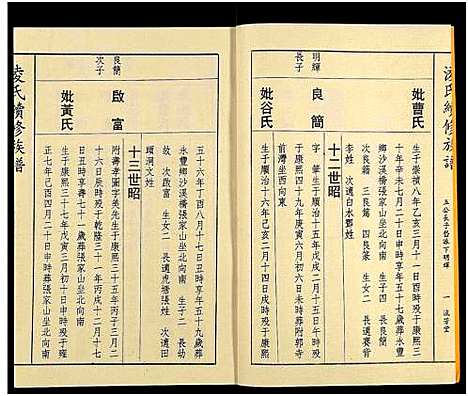 凌氏續修族譜
五公長子哲派下明煇
一
流芳堂
妣曹氏
生于崇禎八年乙亥三月十一日酉時歿于康熙
三十年辛未七月二十日申時享年五十七歲葬永豐
鄉沙溪橋張家山坐北向南 生子四 長良簡
次良籍 三良第 四良篆 生女二 長適賽背
李姓 次適白水鄧姓
明煇
長子
十二世昭
良簡
字華 生于順治十五年戊戌二月十五日戌時歿于
康熙四十九年庚寅六月初六日未時葬附郭寺
前灣坐西向東
妣谷氏
生于順治十六年己亥二月十四日戌時歿于康熙
五十六年丁酉八月十七日丑時享年五十九歲葬
永豐鄉沙溪橋張家山坐北向南 生子二 長劫
次啟富 生女二 長適虎橋張姓 次適田
頭洞文姓
良簡
次子
十三世昭
啟富
附壽孝圖字美先生于康熙三十五年丙子三月二
十六日辰時歿于乾隆三十一年丙戌十二月十七
日丑時享壽七十一歲葬張家山坐北向南
妣黃氏
生于康熙三十七年戊寅三月初十日申時歿于雍
正七年己酉四月二十日申時歿葬張家山坐北向南
凌氏續修族譜